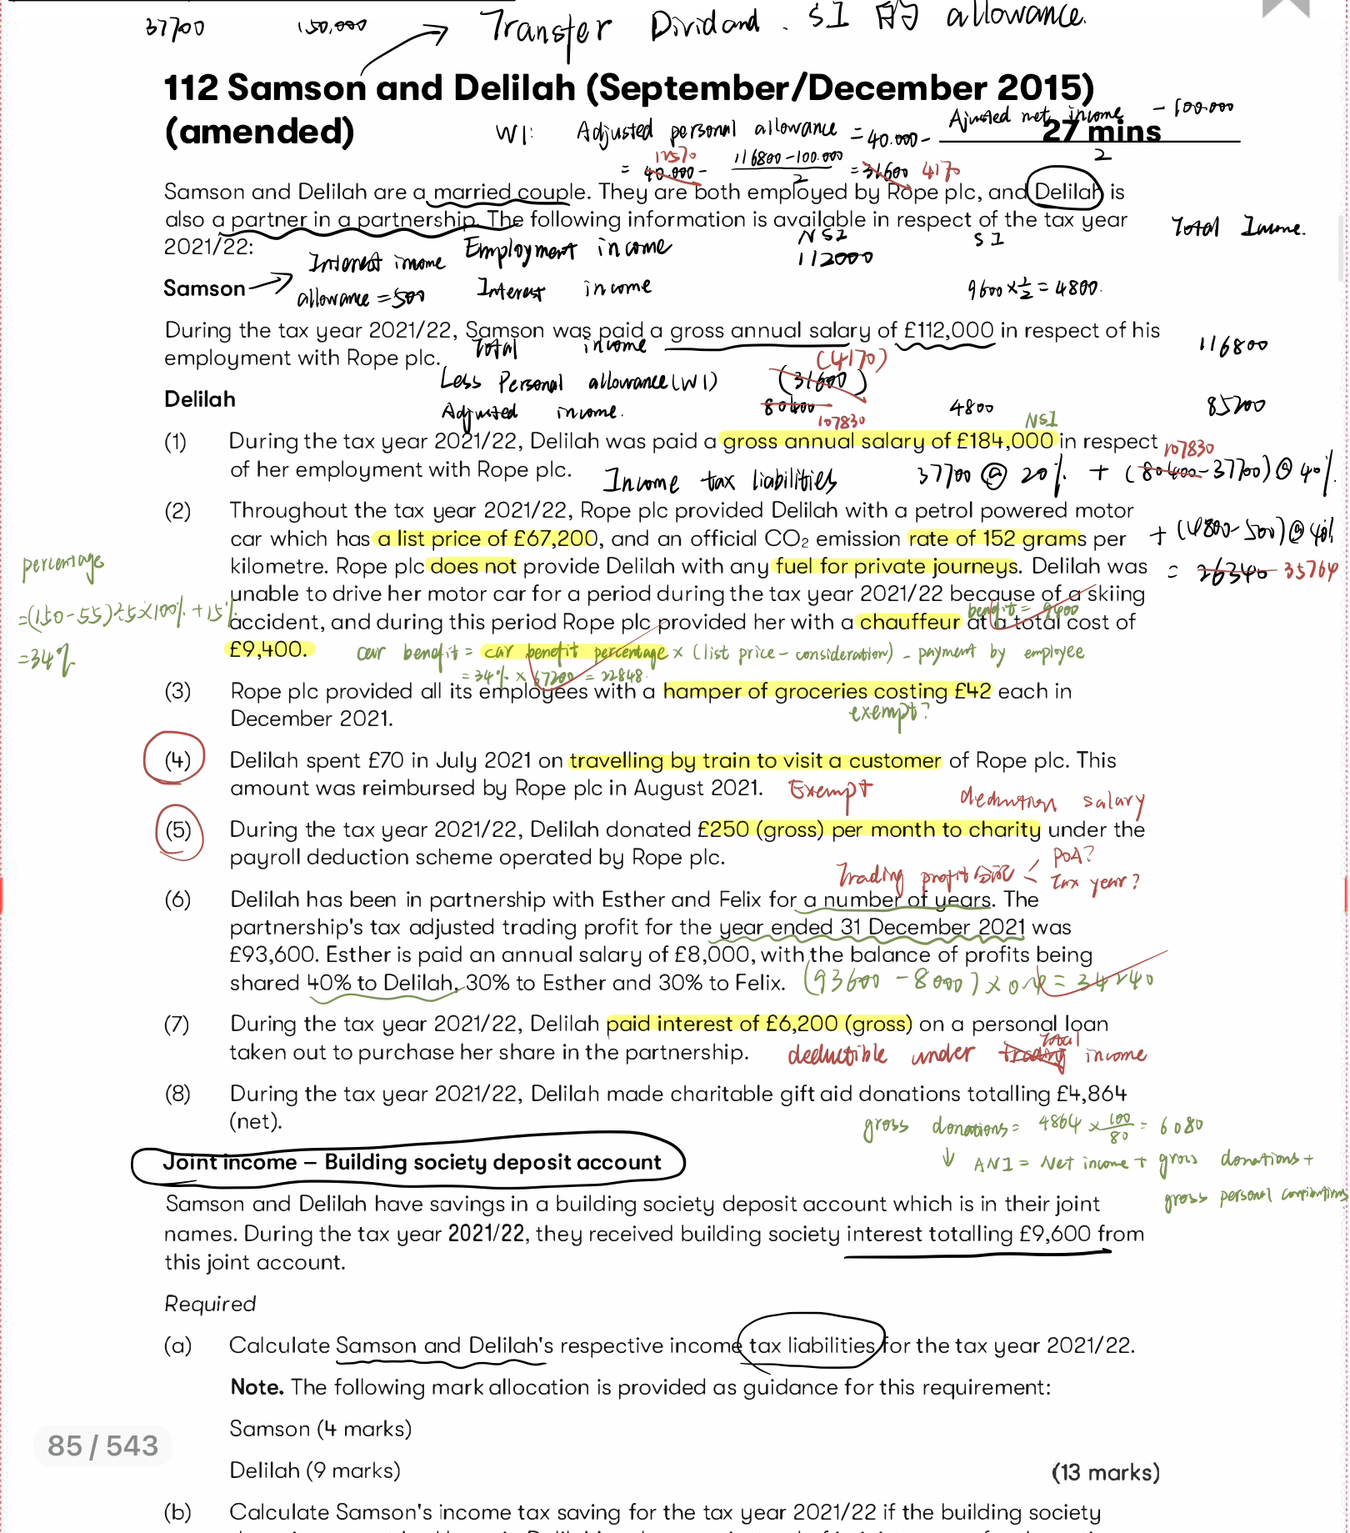 37700 150,000 Transfer Dividand . SI 的 allowance.
112 Samson and Delilah (September/December 2015)
(amended) 27 mins
W1: Adjusted personal allowance = 40.000 - Ajusted net income - 100.000
2
= 40.000 - 12570 116800-100.000 = 31600 4170
2
Samson and Delilah are a married couple. They are both employed by Rope plc, and Delilah is
also a partner in a partnership. The following information is available in respect of the tax year
2021/22:
NSI SI Total Income.
Employment income 112000
Interest income
Samson
allowance = 500 Interest income 9600 × ½ = 4800.
During the tax year 2021/22, Samson was paid a gross annual salary of £112,000 in respect of his
employment with Rope plc.
Total income 116800
(4170)
Less Personal allowance (W1) (31600)
Delilah
Adjusted income. 80400 107830 4800 85200
NSI
(1) During the tax year 2021/22, Delilah was paid a gross annual salary of £184,000 in respect
of her employment with Rope plc.
107830
Income tax liabilities 37700 @ 20% + (80400-37700) @ 40%
+ (4800-500) @ 40%
= 26340 35764
(2) Throughout the tax year 2021/22, Rope plc provided Delilah with a petrol powered motor
car which has a list price of £67,200, and an official CO₂ emission rate of 152 grams per
kilometre. Rope plc does not provide Delilah with any fuel for private journeys. Delilah was
unable to drive her motor car for a period during the tax year 2021/22 because of a skiing
accident, and during this period Rope plc provided her with a chauffeur at a total cost of
£9,400.
percentage
=(150-55)÷5×100%+15%
=34%
benefit = 9400
car benefit = car benefit percentage × (list price - consideration) - payment by employee
= 34% × 67200 = 22848
(3) Rope plc provided all its employees with a hamper of groceries costing £42 each in
December 2021.
exempt?
(4) Delilah spent £70 in July 2021 on travelling by train to visit a customer of Rope plc. This
amount was reimbursed by Rope plc in August 2021.
Exempt
deduction salary
(5) During the tax year 2021/22, Delilah donated £250 (gross) per month to charity under the
payroll deduction scheme operated by Rope plc.
Trading profit POA?
Tax year?
(6) Delilah has been in partnership with Esther and Felix for a number of years. The
partnership's tax adjusted trading profit for the year ended 31 December 2021 was
£93,600. Esther is paid an annual salary of £8,000, with the balance of profits being
shared 40% to Delilah, 30% to Esther and 30% to Felix.
(93600 - 8000) × 0.4 = 34240
(7) During the tax year 2021/22, Delilah paid interest of £6,200 (gross) on a personal loan
taken out to purchase her share in the partnership.
deductible under trading total income
(8) During the tax year 2021/22, Delilah made charitable gift aid donations totalling £4,864
(net).
gross donations = 4864 × 100/80 = 6080
↓ ANI = Net income + gross donations +
gross personal contributions
Joint income – Building society deposit account
Samson and Delilah have savings in a building society deposit account which is in their joint
names. During the tax year 2021/22, they received building society interest totalling £9,600 from
this joint account.
Required
(a) Calculate Samson and Delilah's respective income tax liabilities for the tax year 2021/22.
Note. The following mark allocation is provided as guidance for this requirement:
Samson (4 marks)
85 / 543
Delilah (9 marks) (13 marks)
(b) Calculate Samson's income tax saving for the tax year 2021/22 if the building society